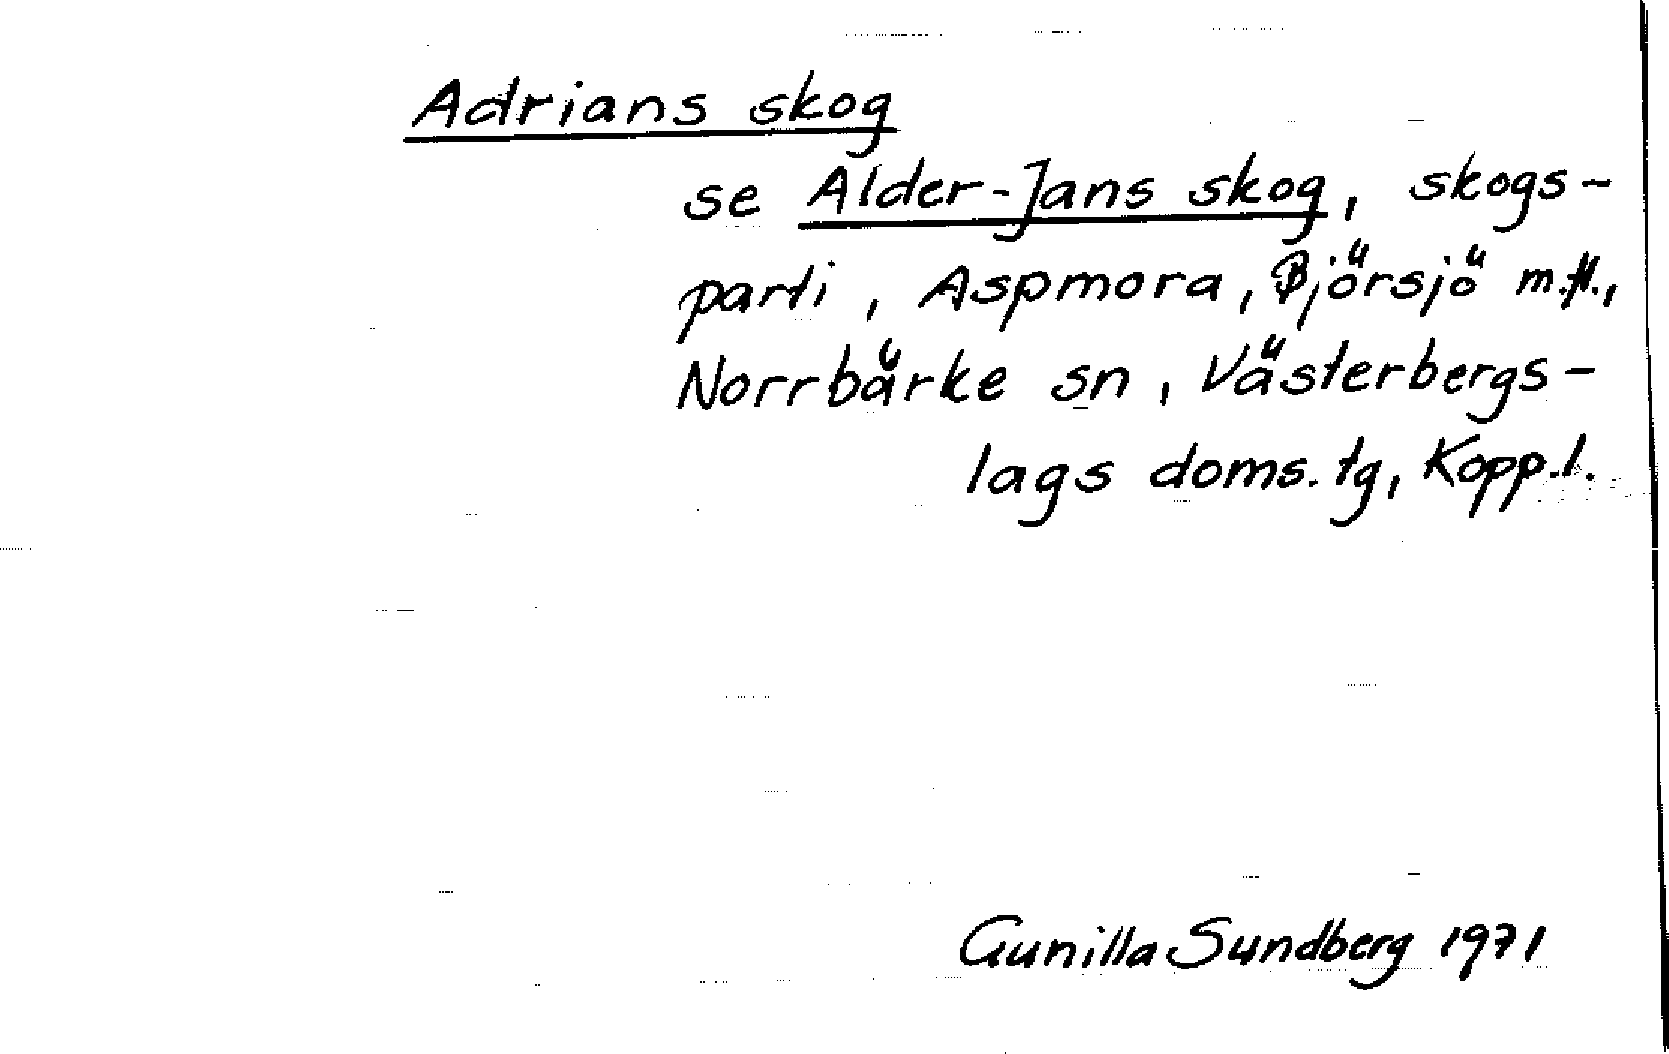 Adrians skog
se Alder-Jans skog, skogs-
parti, Aspmora, Björsjö m.fl.,
Norrbärke sn, Västerbergs-
lags doms. tg, Kopp. l.
Gunilla Sundberg 1971